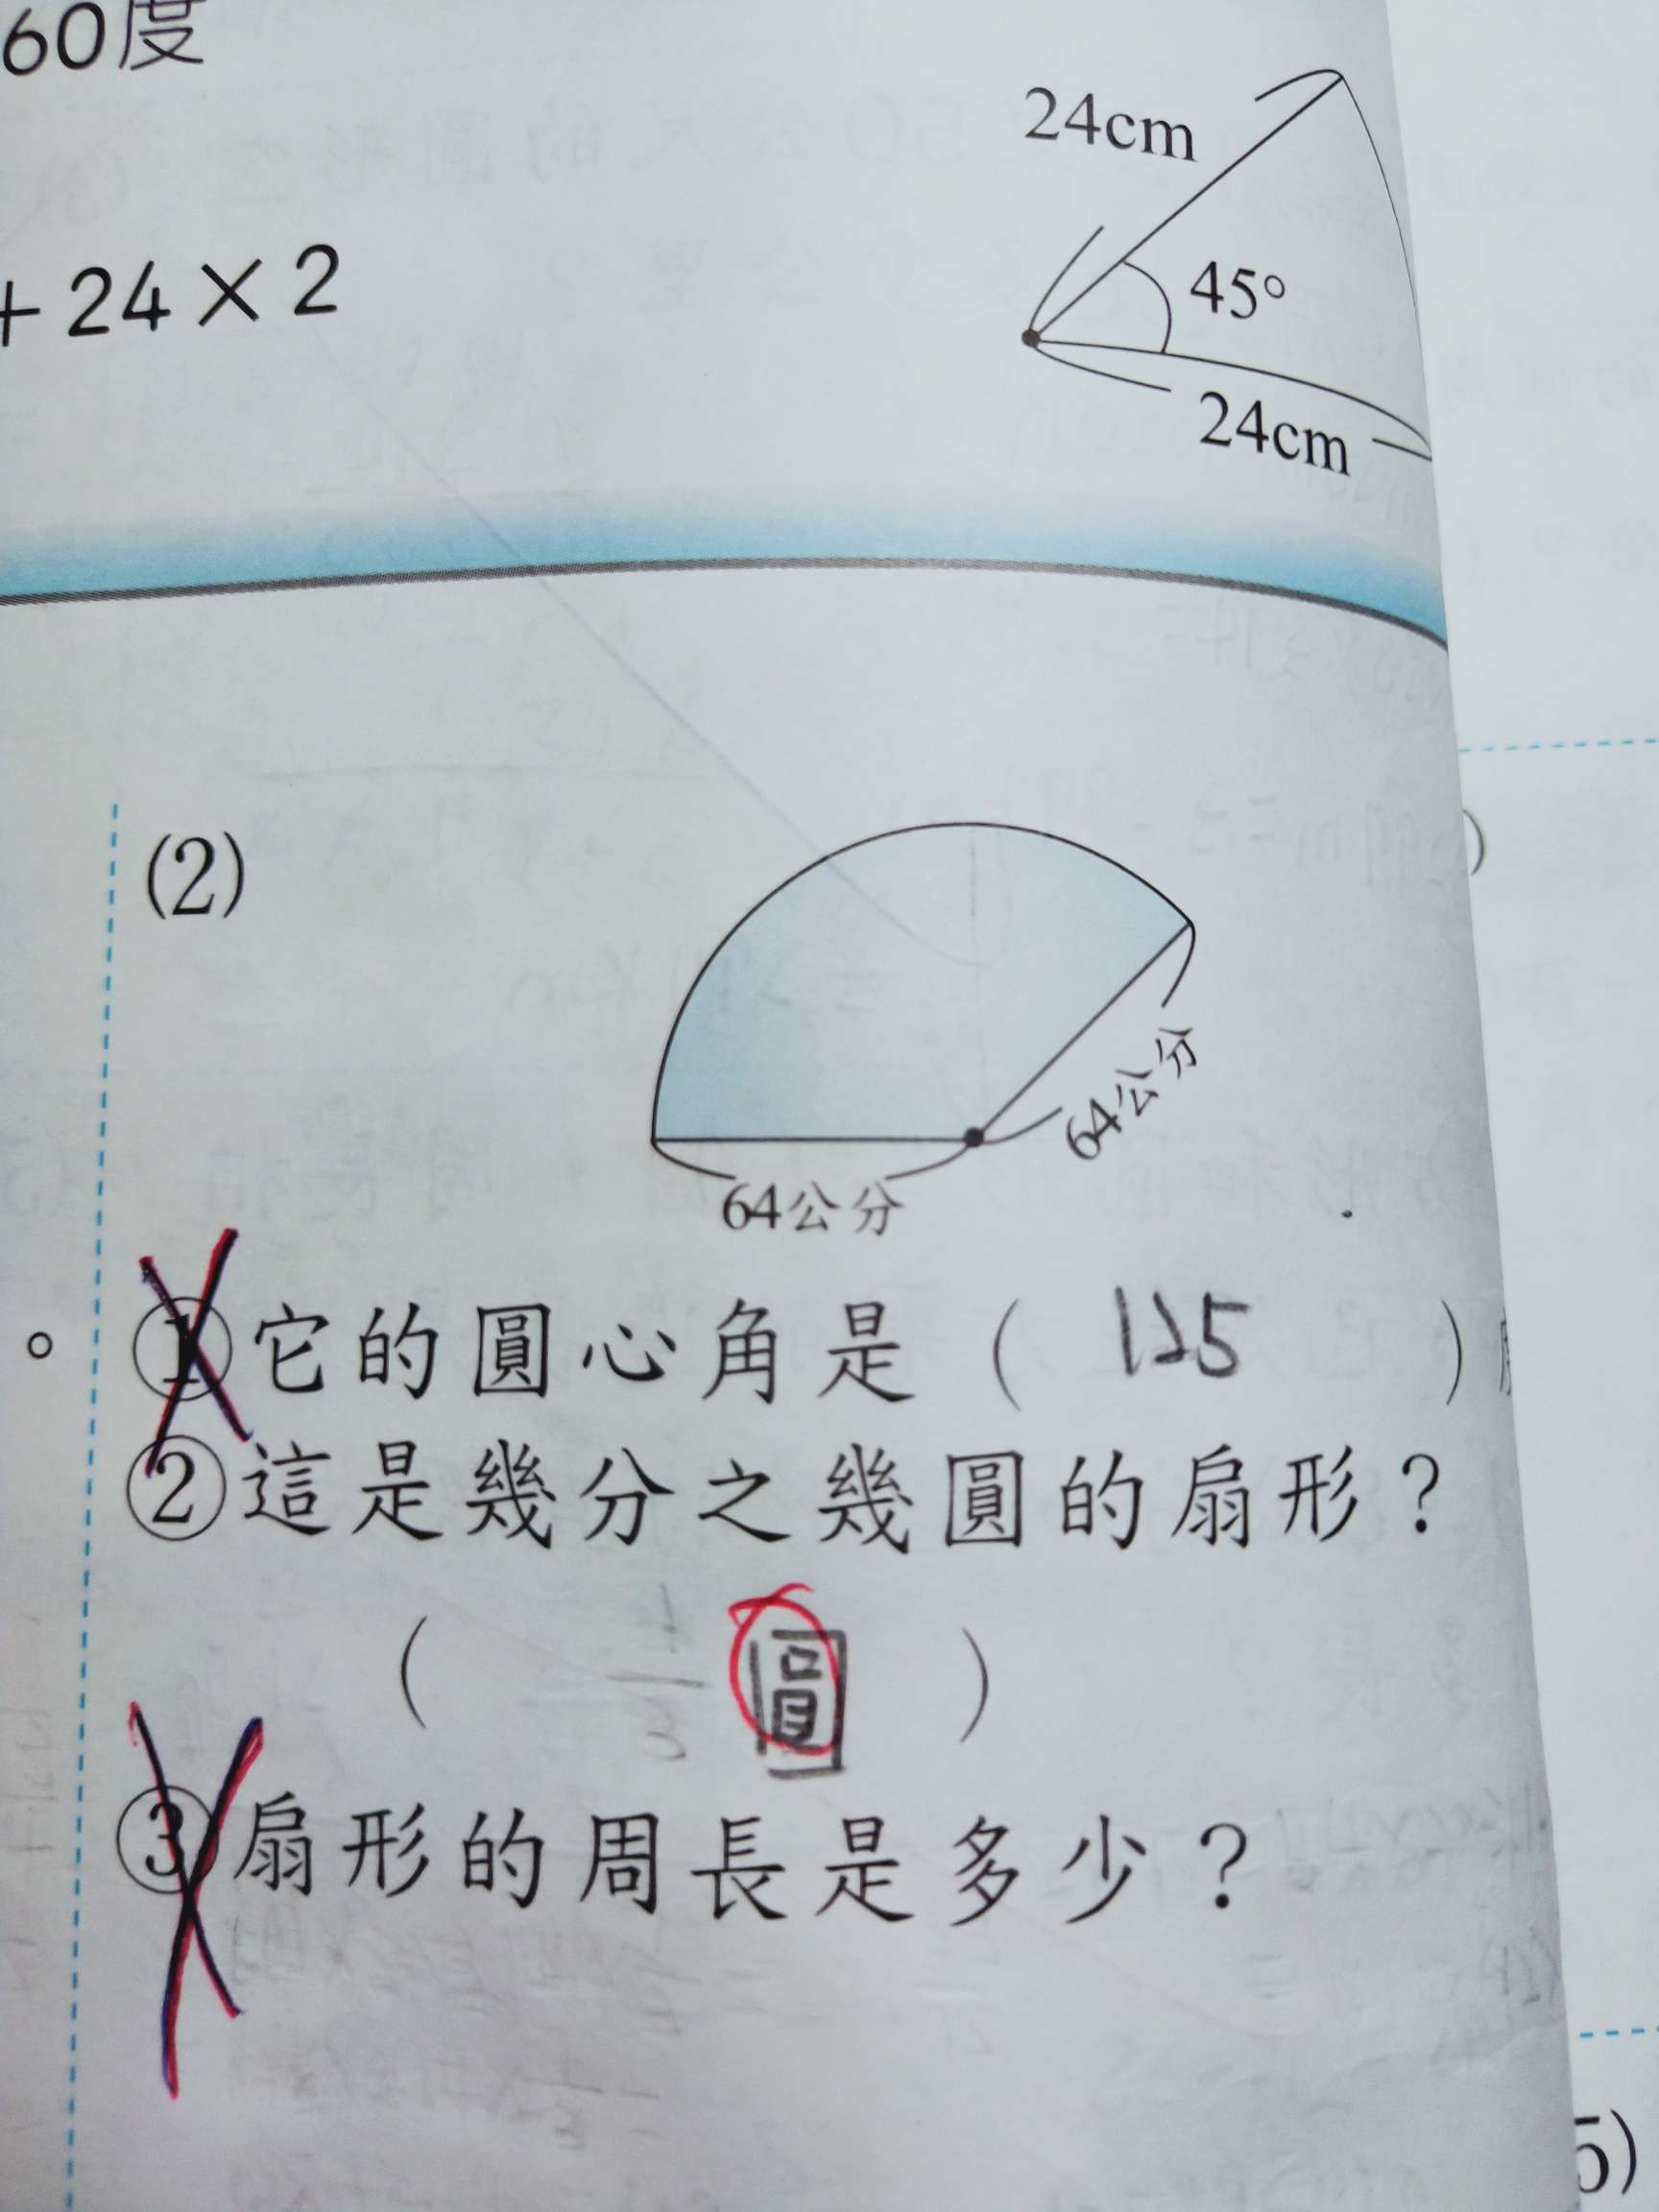 60度
24cm
45°
+ 24 × 2
24cm
(2)
64公分
64公分
①它的圓心角是( 125 )
②這是幾分之幾圓的扇形?
( 圓 )
③扇形的周長是多少?
5)